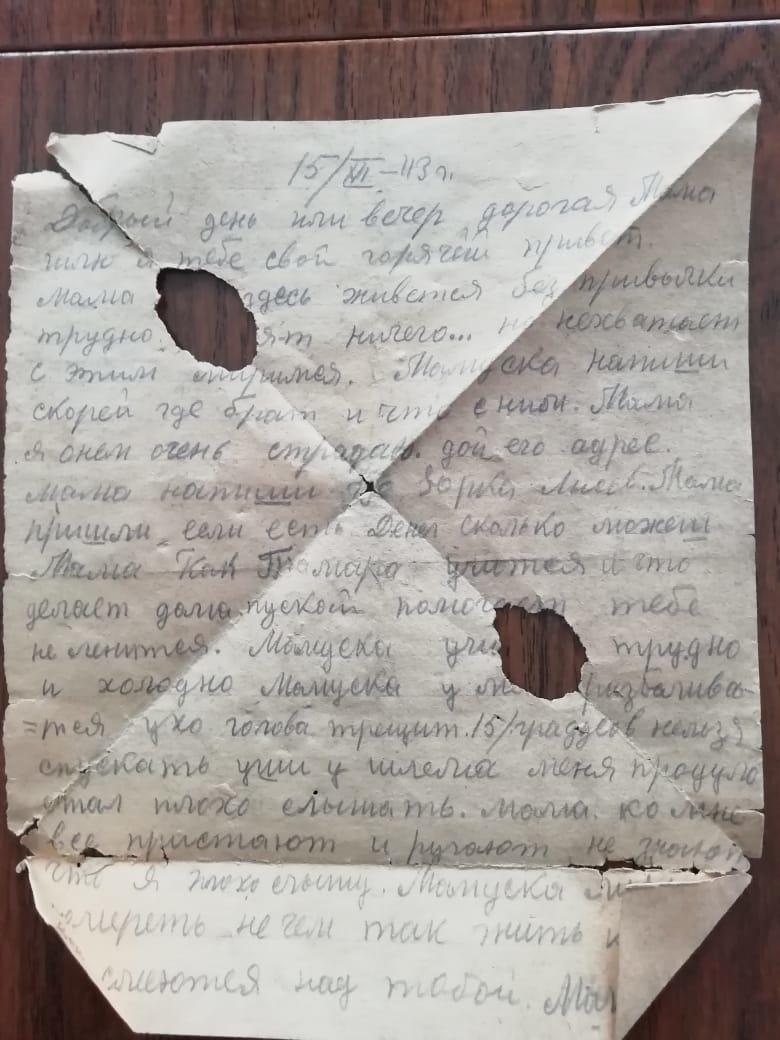 15/XII-43 г.
Добрый день или вечер дорогая Мама
шлю я тебе свой горячей привет.
Мама здесь живется без привычки
трудно. ят ничего... но нехватает
с этим миримся. Мамуска напиши
скорей где брат и что с ним. Мама
я онем очень страдаю. дой его адрес.
мама напиши Мама
пришли если есть Денег сколько можеш
Мама Как Тамара учится и что
делает дома пускай помогает тебе
не ленится. Мамуска учи трудно
и холодно Мамуска у м разваливае
=тся ухо голова трещит. 15/градусов нельзя
спускать уши у шлема меня продуло
стал плохо слышать. мама. ко мне
все пристают и ругают не знают
что я плохо слышу. Мамуска
омереть не чем так жить и
смеются над тобой. Мам